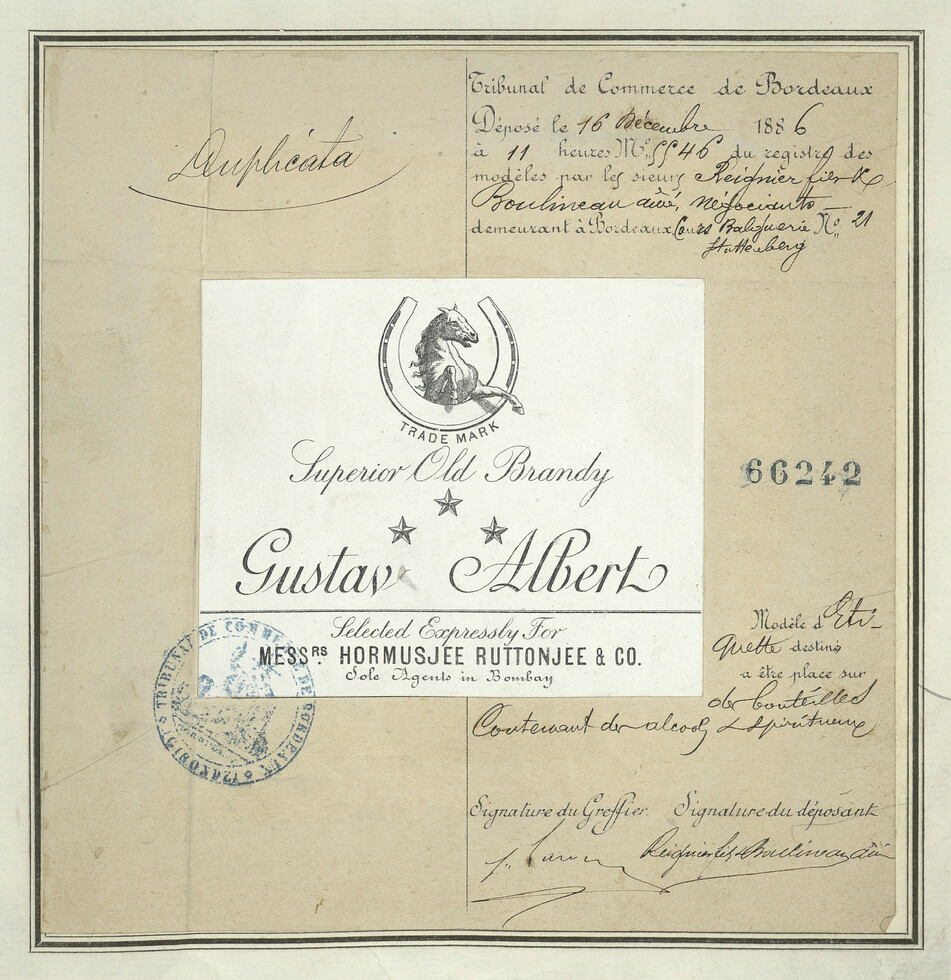 Duplicata
Tribunal de Commerce de Bordeaux
Déposé le 16 Décembre 1886
à 11 heures No. 5546 du registre des
modèles par les sieurs Reignier fils &
Boulineau aîné, négociants
demeurant à Bordeaux Cours Balguerie No. 21
Stuttenberg
TRADE MARK
Superior Old Brandy
Gustav Albert
Selected Expressly For
MESSRS HORMUSJEE RUTTONJEE & CO.
Sole Agents in Bombay
66242
Modèle d'Eti-
quette destiné
a être place sur
des bouteilles
Contenant des alcools & spiritueux
TRIBUNAL DE COMMERCE DE BORDEAUX
Signature du Greffier Signature du déposant
Reignier fils & Boulineau aîné